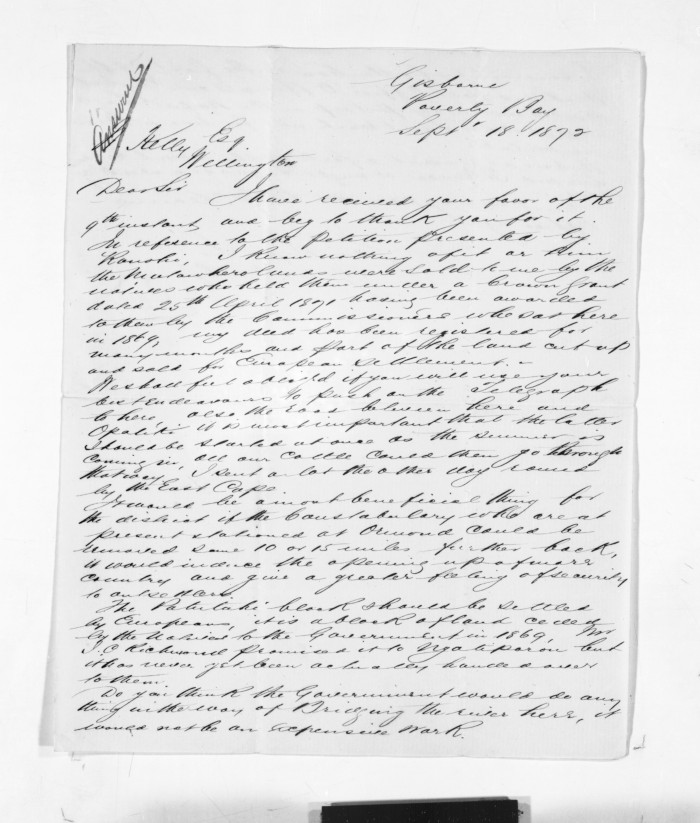 Answered
Gisborne
Poverty Bay
Septr 18. 1872
Kelly Esq.
Wellington
Dear Sir I have received your favor of the
9th instant and beg to thank you for it.
In reference to the Petition presented by
I know nothing of it or him
the Matawhero lands were sold to me by the
natives who held them under a Crown grant
dated 25th April 1871 having been awarded
to them by the Commissioners who sat here
in 1869, my deed has been registered for
many months and part of the land cut up
and sold for European settlement. -
We shall feel obliged if you will use your
best Endeavours to push on the Telegraph
to here, also the road between here and
Opotiki it is most important that the latter
should be started at once as the summer is
coming in, all our cattle could then go through
that way. I sent a lot the other day round
by the East Cape.
It would be a most beneficial thing for
the district if the Constabulary who are at
present stationed at Ormond could be
removed some 10 or 15 miles further back,
it would induce the opening up of more
country and give a greater feeling of security
to our settlers.
The Patutahi block should be settled
by Europeans, it is a block of land ceded
by the Natives to the Government in 1869, Mr
J. C. Richmond promised it to Ngatiporou but
it has never yet been actually handed over
to them.
Do you think the Government would do any
thing in the way of Bridging the river here, it
would not be an expensive work.